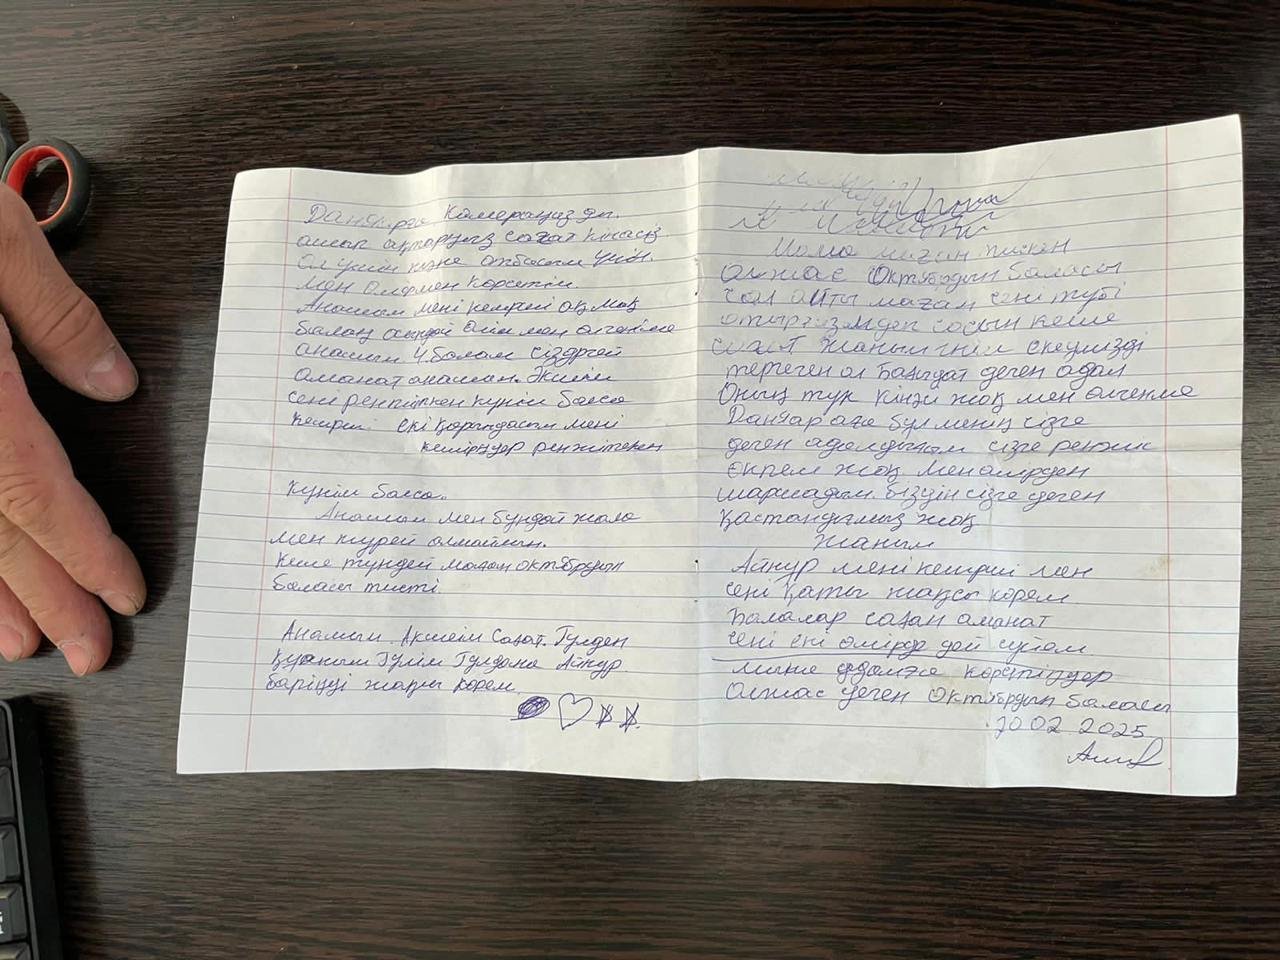 Данияр аға Камераңыз деп.
ашып ақтаруңыз Сағат кінәсіз
Ол үшін және отбасым үшін.
мен өліммен көрсетіп.
Анашым мені кешірші ақ мақ
балаң андай өлім мен өлгеніме
анашым 4 балам сіздргей
аманат анашым. Әкішім
сені ренжіткен күнім болса
Кешірші екі қарындасым мені
кешіріңдер ренжіткен
Күнім болса.
Анашым мен бұндай жала
мен жүрей алмаймын.
Кеше түндей маған октябрдың
баласы тисті.
Анашым Әкішім Сағат. Гүлден
Қуаныш Гүлім Гулдана Айнур
бәріңді жақсы көрем
Мома маған тискен
Олжас Октябрдын баласы
сол айты маған сені түбі
отырғызм деп сосын кеше
Сағат жаным інім екеумізді
тергеген ол Бағдат деген адал
Оның түк кінәсі жоқ мен өлгенме
Данияр аға бұл менің сізге
деген адалдығым сізге ренжік
өкпем жоқ Мен өмірден
шаршадым біздің сізге деген
қастандығымыз жоқ
Жаным
Айнур мені кешірші мен
сені қатты жақсы көрем
Балалар саған аманат
сені екі өмірде дей сүйем
мына адамға көрсетіңдер
Олжас деген Октябрдың баласы
20 02 2025